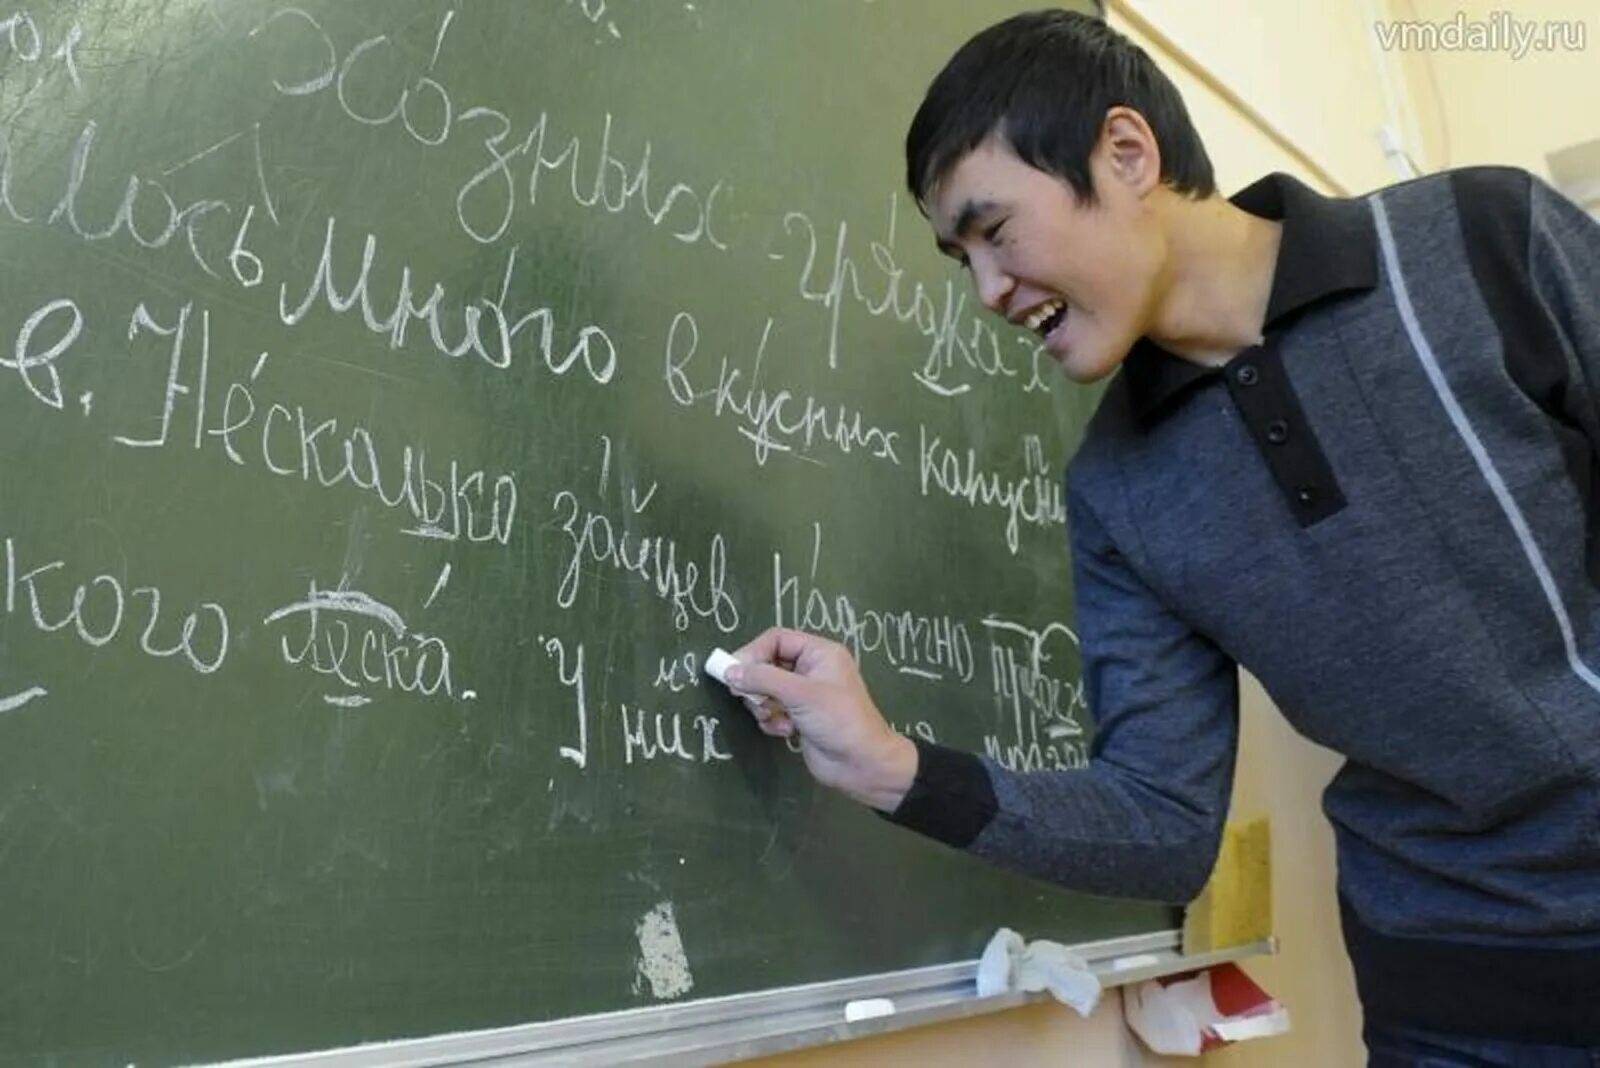 vmdaily.ru
хозных грядках
лось много вкусных капустн
в. Нескалько зайцев радостно
кого леска. У них